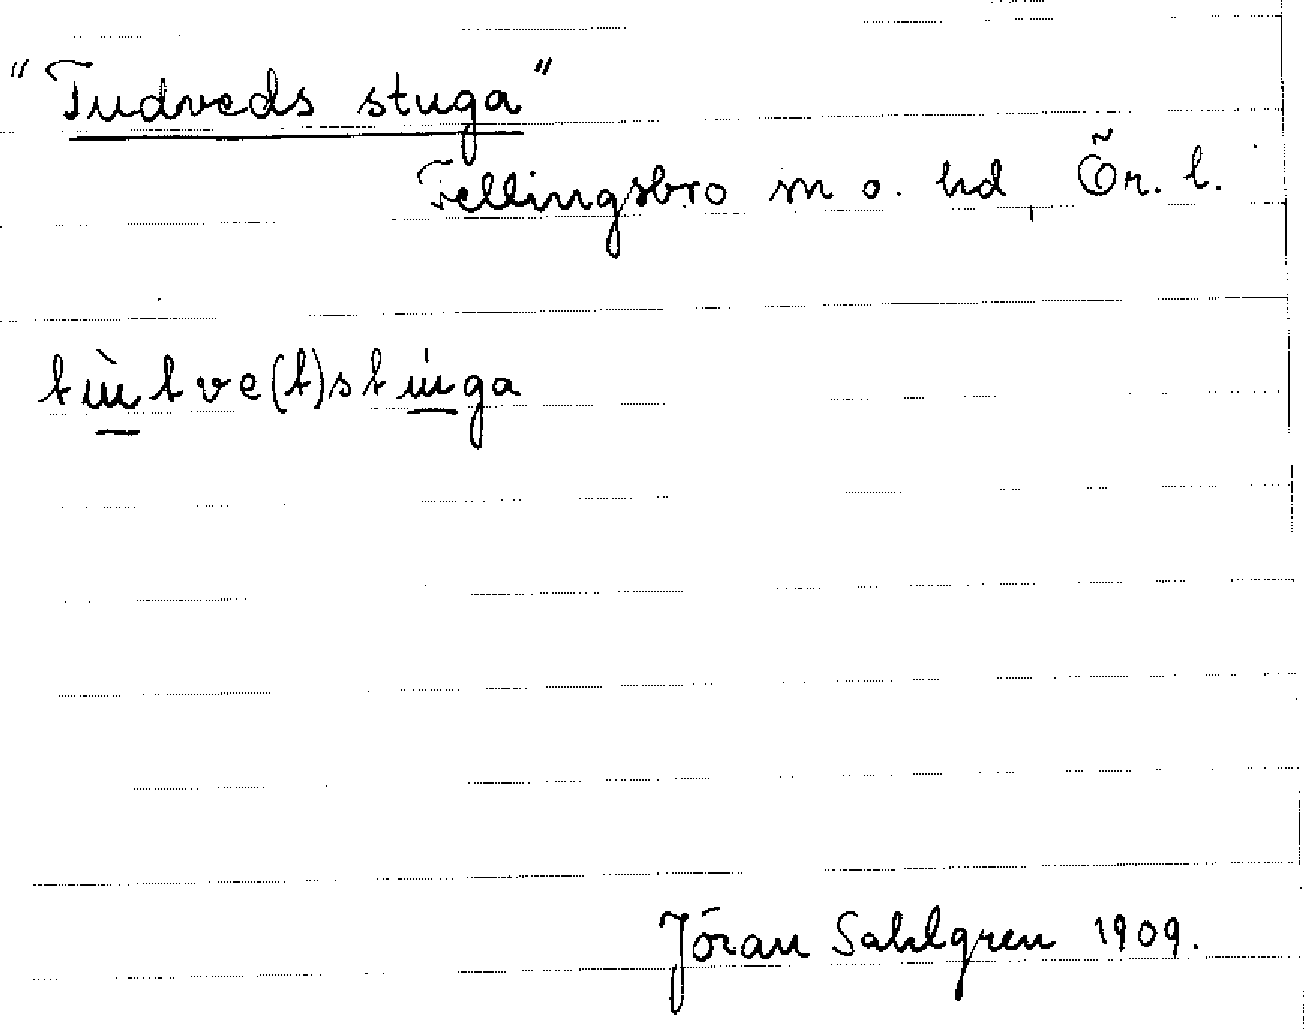 "Tudveds stuga"
Fellingsbro sn o. hd, Ör. l.
tù̲tve(t)stú̲ga
Jöran Sahlgren 1909.